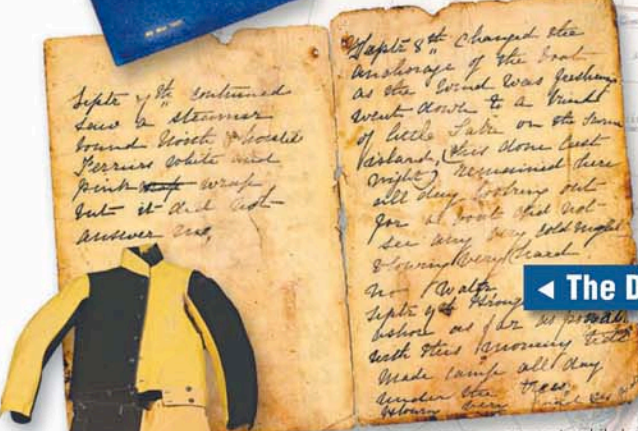 Septr 7th Continued
saw a steamer
bound North & hoisted
Ferriers white and
pink wrap
but it did not
answer me,
Septr 8th Changed the
anchorage of the boat
as the wind was freshening
went down to a
of little on the same
island, (this done last
night) remained here
all day looking out
for a boat did not
see any very cold night
blowing very hard
no water
Septr 9th Brought
ashore as far as possible
with this morning tide
made camp all day
under the trees,
blowing very hard
◄ The D